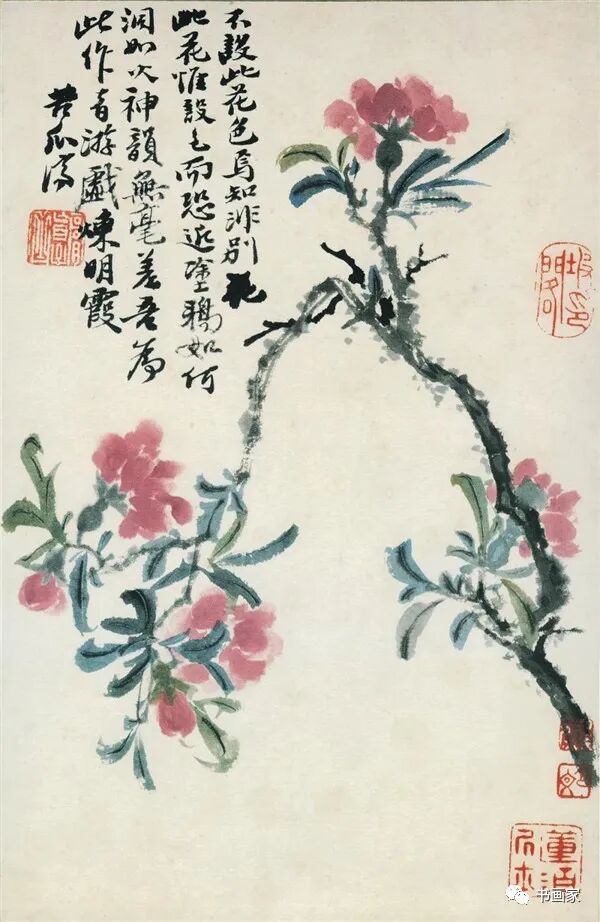 不設此花色焉知非別花
此花惟設色而恐近塗鴉如何
洞如火神韻無毫差吾為
此作者游戲煉明霞
苦瓜濟
书画家